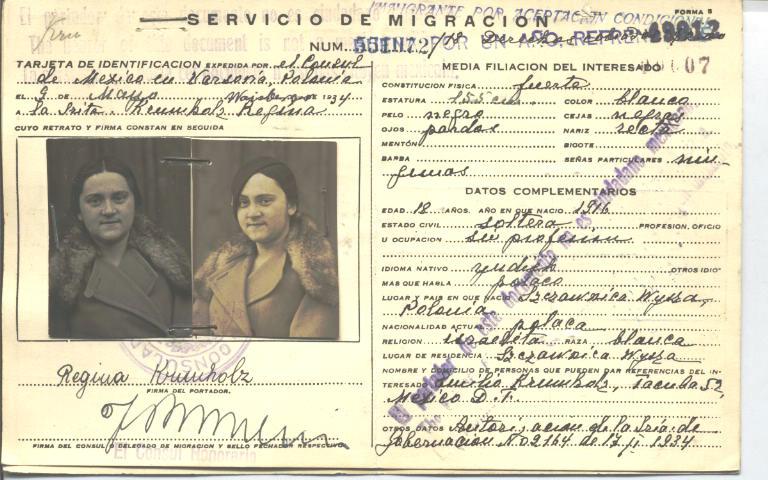 INMIGRANTE POR ACEPTACION CONDICIONAL
FORMA 5
SERVICIO DE MIGRACION
NUM. 55172
POR UN AÑO, REFRENDABLE
43012
TARJETA DE IDENTIFICACION EXPEDIDA POR el Consul
de Mexico en Varsovia, Polonia
EL 9 de Mayo DE 1934
A la Srita. Krumholz Regina
CUYO RETRATO Y FIRMA CONSTAN EN SEGUIDA
Regina Krumholz
FIRMA DEL PORTADOR.
FIRMA DEL CONSUL, DELEGADO DE MIGRACION Y SELLO FECHADOR RESPECTIVO.
El Consul Honorario
MEDIA FILIACION DEL INTERESADO
07
CONSTITUCION FISICA fuerte
ESTATURA 155 cm. COLOR blanco
PELO negro CEJAS negras
OJOS pardos NARIZ recta
MENTÓN BIGOTE
BARBA SEÑAS PARTICULARES nin-
gunas
DATOS COMPLEMENTARIOS
EDAD 18 AÑOS. AÑO EN QUE NACIO 1916
ESTADO CIVIL soltera PROFESION, OFICIO
U OCUPACION sin profesion
IDIOMA NATIVO yudish OTROS IDIO-
MAS QUE HABLA polaco
LUGAR Y PAIS EN QUE NACIO Szczawnica Wyzsza,
Polonia
NACIONALIDAD ACTUAL polaca
RELIGION israelita RAZA blanca
LUGAR DE RESIDENCIA Szczawnica Wyzsza
NOMBRE Y DOMICILIO DE PERSONAS QUE PUEDEN DAR REFERENCIAS DEL IN-
TERESADO Emilio Krumholz, Tacuba 52,
Mexico D. F.
OTROS DATOS Autorizacion de la Sria. de
Gobernacion No 2164 de 17 II 1934
El portador de este documento no es ciudadano mexicano